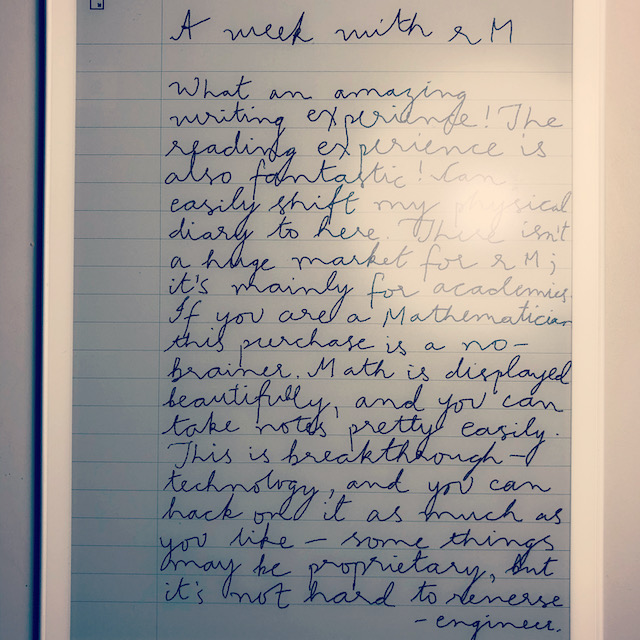 A week with rM
What an amazing
writing experience! The
reading experience is
also fantastic! Can
easily shift my physical
diary to here. There isn't
a huge market for rM;
it's mainly for academics.
If you are a Mathematician
this purchase is a no-
brainer. Math is displayed
beautifully, and you can
take notes pretty easily.
This is breakthrough-
technology, and you can
hack on it as much as
you like - some things
may be proprietary, but
it's not hard to reverse
-engineer.